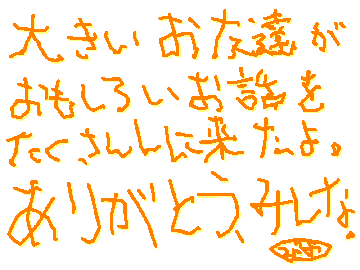 大きいお友達が
おもしろいお話を
たくさんしに来たよ。
ありがとう、みんな。